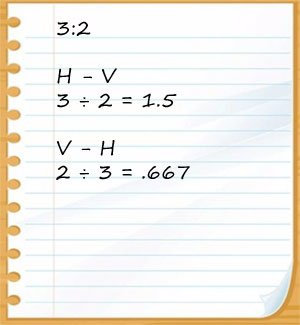 3:2
H - V
3 ÷ 2 = 1.5
V - H
2 ÷ 3 = .667